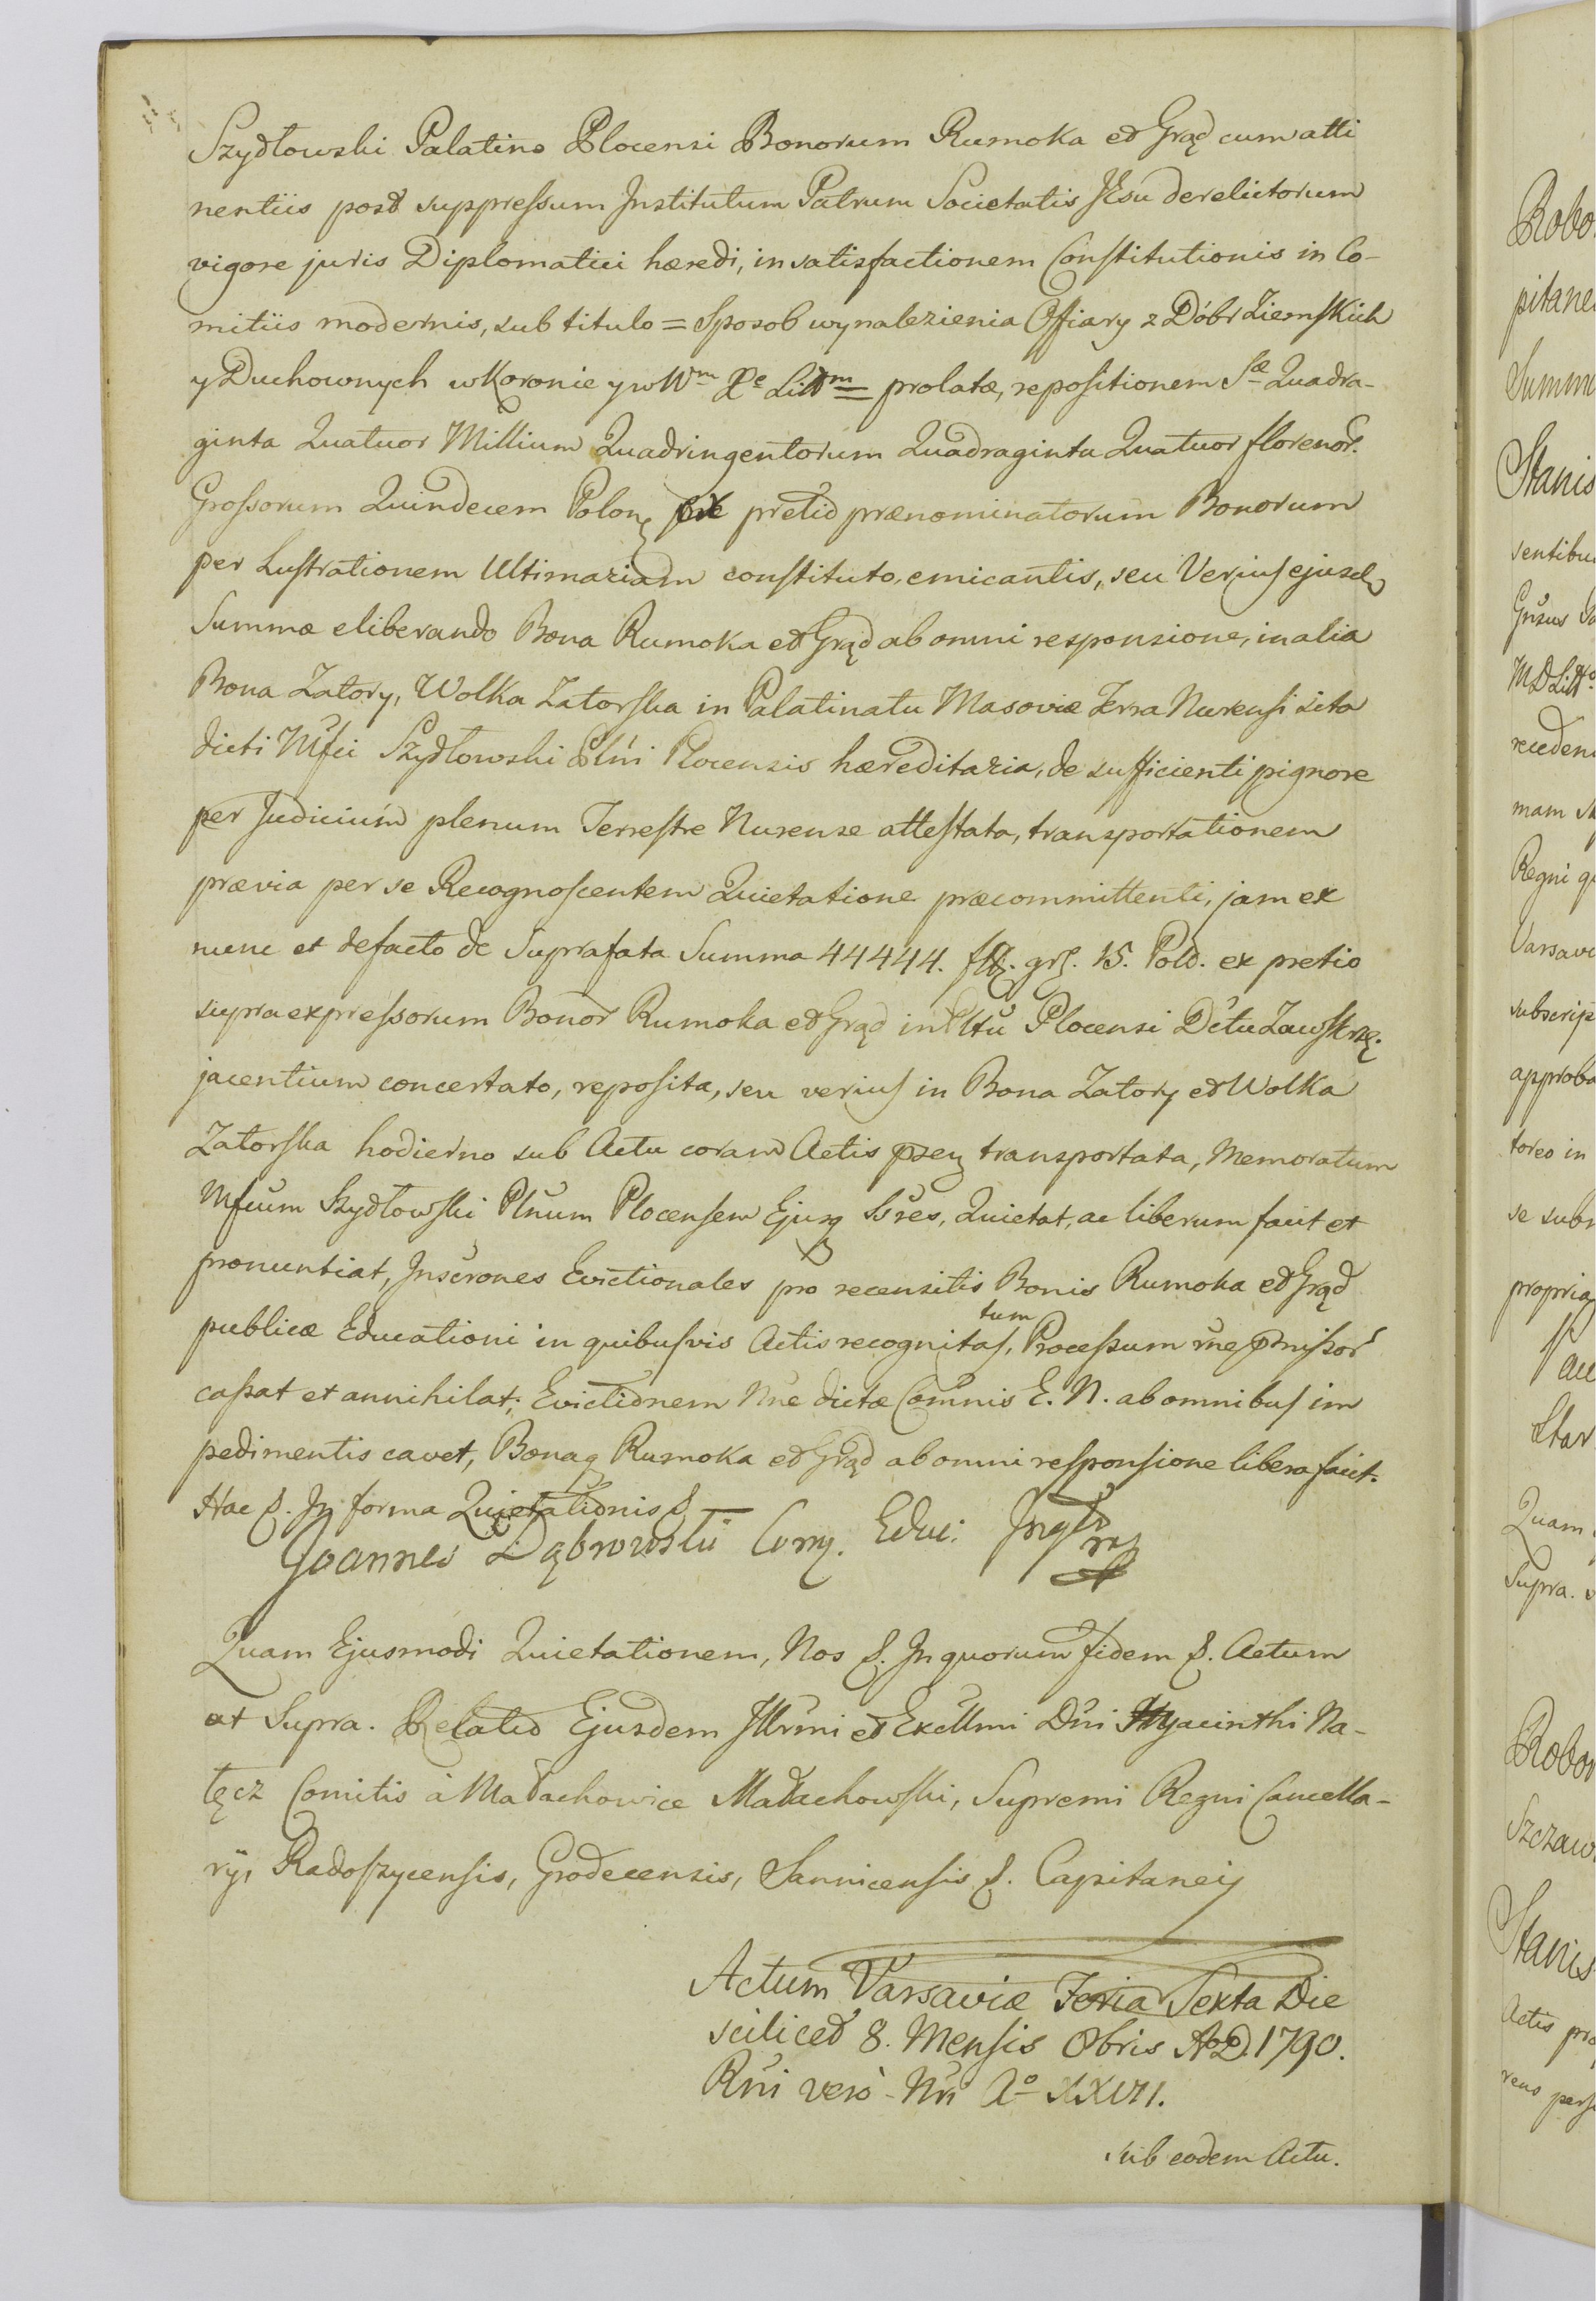 Szydłowski Palatino Plocensi Bonorum Rumoka et Grąd cum atti
nentiis post suppressum Institutum Patrum Societatis JEsu derelictorum
vigore juris Diplomatici hæredi, in satisfactionem Constitutionis in Co-
mitiis modernis, sub titulo = Sposob wynalezienia Offiary z Dóbr Ziemskich
y Duchownych w Koronie y w Wm Xe Littm = prolatæ, repositionem Sæ Quadra-
ginta Quatuor Millium Quadringentorum Quadraginta Quatuor florenor.
Grossorum Quindecem Polon ex pretio prænominatorum Bonorum
per Lustrationem Ultimariam constituto, emicantis, seu Verius ejusd
Summæ eliberando Bona Rumoka et Grąd ab omni responsione, in alia
Bona Zatory, Wolka Zatorska in Palatinatu Masoviæ Terra Nurensi sita
dicti Mfci Szydłowski Plni Plocensis hæreditaria, de sufficienti pignore
per Judicium plenum Terrestre Nurense attestata, transportationem
prævia per se Recognoscentem Quietatione præcommittenti, jam ex
nunc et defacto de Suprafata Summa 44444. fl. grs. 15. Pold. ex pretio
supraexpressorum Bonor Rumoka et Grąd in Pltu Plocensi Dctu Zawskrz.
jacentium concertato, reposita, seu verius in Bona Zatory et Wolka
Zatorska hodierno sub Actu coram Actis psen transportata, Memoratum
Mfcum Szydłowski Plnum Plocensem Ejusq Ssres, Quietat, ac liberum facit et
pronuntiat, Inscrones Evictionales pro recensitis Bonis Rumoka et Grąd
publicæ Educationi in quibusvis Actis recognitas, tum Processum rne pmissor
cassat et annihilat; Evictionem Nne dictæ Comnis E. N. ab omnibus im
pedimentis cavet, Bonaq Rumoka et Grąd ab omni responsione libera facit.
Hac &. In forma Quietationis &
Joannes Dąbrowski Comy. Educ:
Quam Ejusmodi Quietationem, Nos &. In quorum fidem &. Actum
ut Supra. Relatio Ejusdem Illrmi et Excllmi Dni Hyacinthi Na-
łęcz Comitis à Małachowice Małachowski, Supremi Regni Cancella-
rij, Radoszycensis, Grodecensis, Sannicensis &. Capitanei
Actum Varsaviæ Feria Sexta Die
scilicet 8. Mensis Obris A.D. 1790.
Rni verò Nri Ao XXVII.
sub eodem Actu.